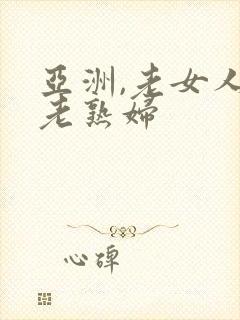 亞洲,老女人
老熟婦
心碑